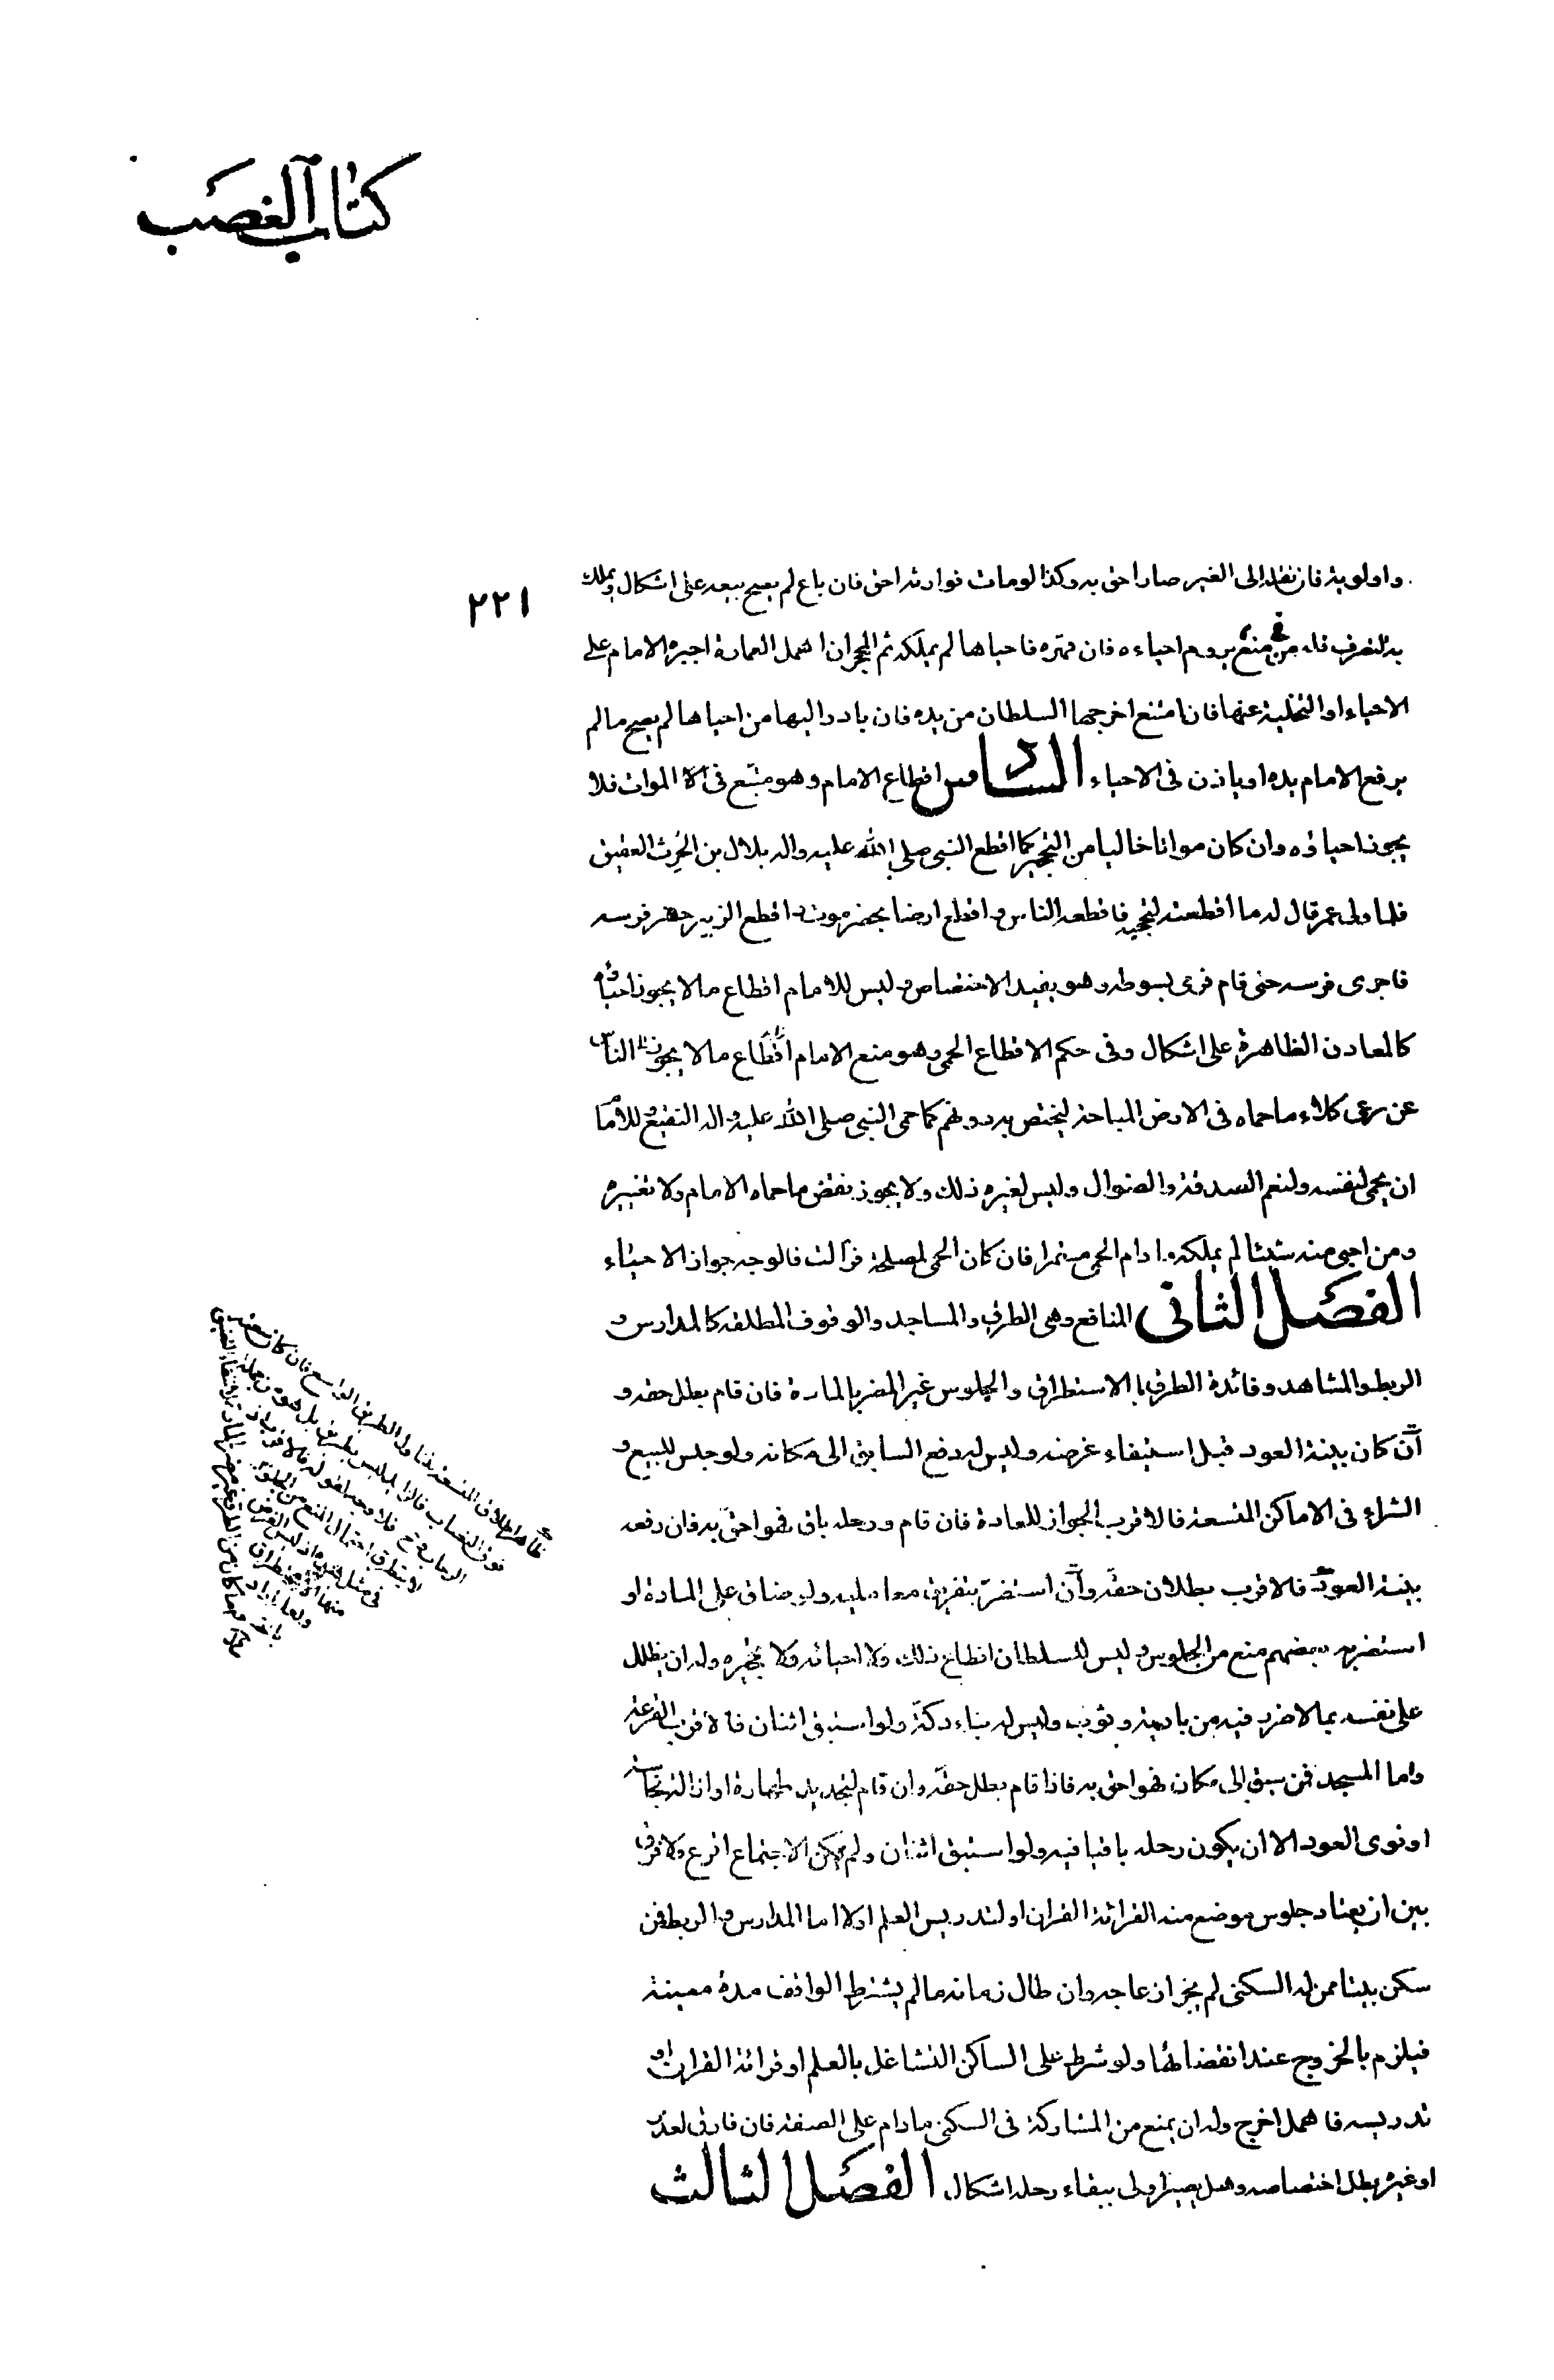 كتاب الغصب
٢٢١
واولوية فان نقله الى الغير صار احق به وكذا لو مات فوارثه احق فان باع لم يصح بيعه على اشكال ويملك
به التصرف فله منع من يروم احياءه فان قهره فاحياها لم يملكه ثم المحجر ان اهمل العمارة اجبره الامام على
الاحياء او التخلية عنها فان امتنع اخرجها السلطان من يده فان بادر اليها من احياها لم يصح مالم
يرفع الامام يده او ياذن فى الاحياء السادس اقطاع الامام وهو متبع فى الموات فلا
يجوز احياؤه وان كان مواتا خاليا من التحجير كما اقطع النبى صلى الله عليه واله بلال بن الحرث العقيق
فلما ولى عمر قال له ما اقطعته لتحجبه فاقطعه الناس واقطع ارضا بحضرموت واقطع الزبير حضر فرسه
فاجرى فرسه حتى قام فرمى بسوطه وهو يفيد الاختصاص وليس للامام اقطاع مالا يجوز احياؤه
كالمعادن الظاهرة على اشكال وفى حكم الاقطاع الحمى وهو منع الامام اقطاع مالا يجوز الناس
عن رعى كلاء ما حماه فى الارض المباحة ليختص به دونهم كما حمى النبى صلى الله عليه واله النقيع وللامام
ان يحمى لنفسه ولنعم الصدقة والضوال وليس لغيره ذلك ولا يجوز نقض ما حماه الامام ولا تغييره
ومن احيى منه شيئا لم يملكه مادام الحمى مستمرا فان كان الحمى لمصلحة فزالت فالوجه جواز الاحياء
الفصل الثانى المنافع وهى الطرق والمساجد والوقوف المطلقة كالمدارس و
الربط والمشاهد وفائدة الطرق الاستطراق والجلوس غير المضر بالمارة فان قام بطل حقه و
ان كان بينة العود قبل استيفاء غرضه وليس له دفع السابق الى مكانه ولو جلس للبيع و
الشراء فى الاماكن المتسعة فالاقرب الجواز للعادة فان قام ورحله باق فهو احق به فان رفعه
بنية العود فالاقرب بطلان حقه وان استضر بتفريق معامليه ولو ضاق على المارة او
استضر به بعضهم منع من الجلوس وليس للسلطان اقطاع ذلك ولا احيائه ولا تحجيره وله ان يظلل
على نفسه بما لا ضرر فيه من بارية وثوب وليس له بناء دكة ولو استبق اثنان فالاقرب القرعة
واما المسجد فمن سبق الى مكان فهو احق به فاذا قام بطل حقه وان قام لتجديد طهارة او ازالة نجاسة
او نوى العود الا ان يكون رحله باقيا فيه ولو استبق اثنان ولم يمكن الاجتماع اقرع ولا فرق
بين ان يعتاد جلوس موضع منه القرائة القران او لتدريس العلم اولا اما المدارس والربط فمن
سكن بيتا ممن له السكنى لم يجز ازعاجه وان طال زمانه مالم يشترط الواقف مدة معينة
فيلزم بالخروج عند انقضائها ولو شرط على الساكن التشاغل بالعلم او قرائة القران او
تدريسه فاهمل اخرج وله ان يمنع من المشاركة فى السكنى مادام على الصفة فان فارق لعذر
او غيره بطل اختصاصه وهل يصير اولى ببقاء رحله اشكال الفصل الثالث